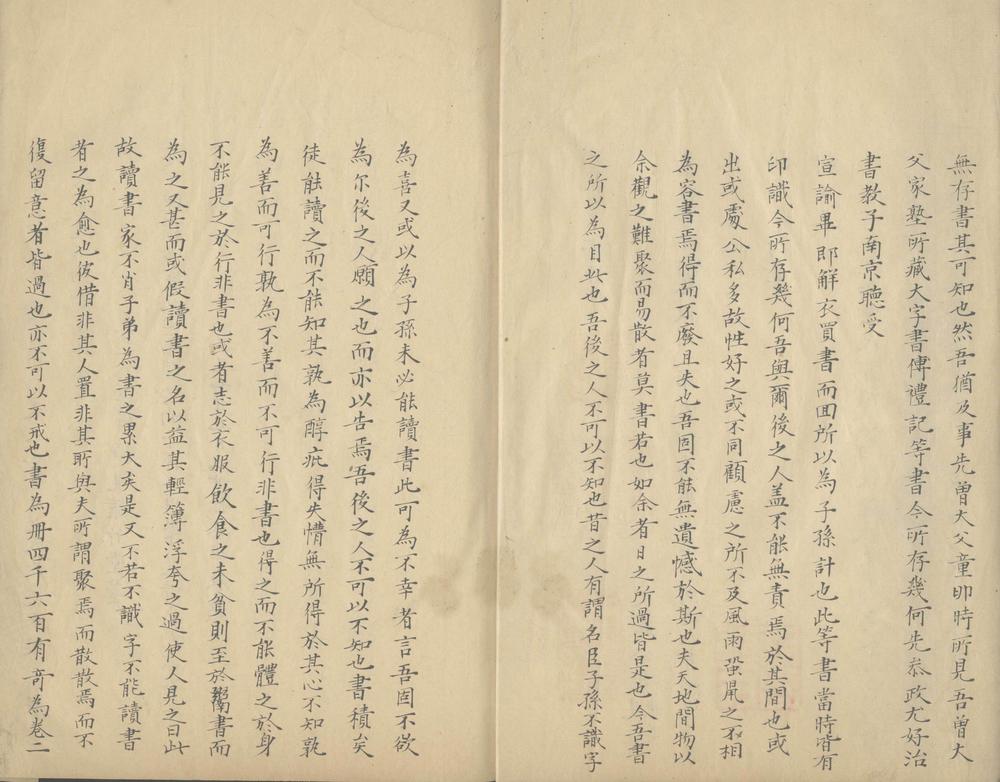 無存書其可知也然吾猶及事先曾大父童丱時所見吾曾大
父家塾所藏大字書傳禮記等書今所存幾何先叅政尤好治
書教子南京聽受
宣諭畢即解衣買書而囬所以為子孫計也此等書當時皆有
印識今所存幾何吾與爾後之人盖不能無責焉於其間也或
出或處公私多故性好之或不同顧慮之所不及風雨蟲鼠之不相
為容書焉得而不廢且失也吾固不能無遺憾於斯也夫天地間物以
余觀之難聚而易散者莫書若也如余者日之所過皆是也今吾書
之所以為目此也吾後之人不可以不知也昔之人有謂名臣子孫不識字
為喜又或以為子孫未必能讀書此可為不幸者言吾固不欲
為尔後之人願之也而亦以告焉吾後之人不可以不知也書積矣
徒能讀之而不能知其孰為醇疵得失懵無所得於其心不知孰
為善而可行孰為不善而不可行非書也得之而不能體之於身
不能見之於行非書也或者志於衣服飲食之未貧則至於鬻書而
為之又甚而或假讀書之名以益其輕簿浮夸之過使人見之曰此
故讀書家不肖子弟為書之累大矣是又不若不識字不能讀書
者之為愈也彼借非其人置非其所與夫所謂聚焉而散散焉而不
復留意者皆過也亦不可以不戒也書為冊四千六百有奇為卷二